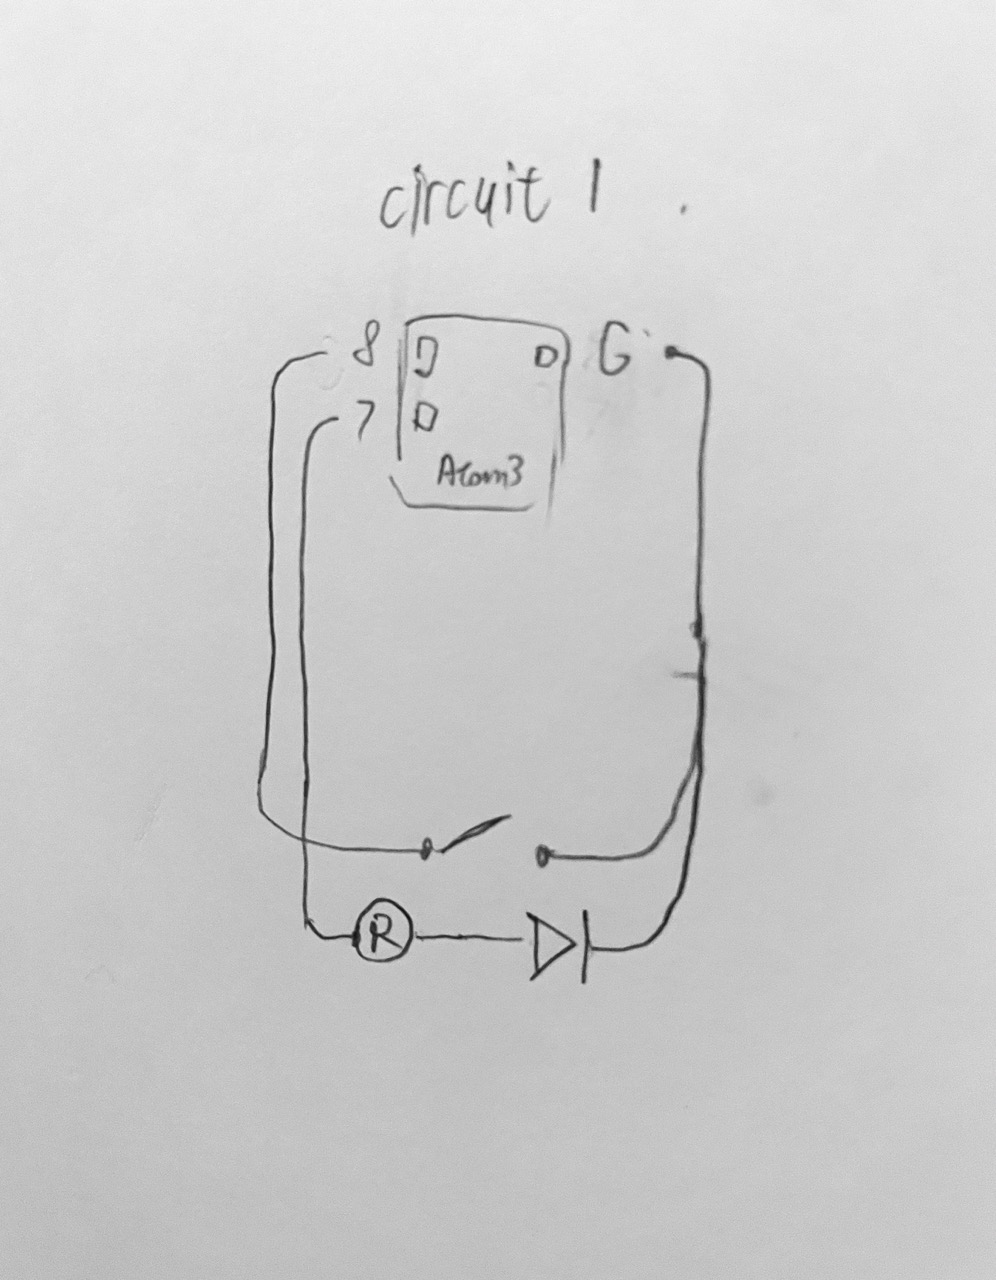 circuit 1 .
8 G
7
Atom3
R